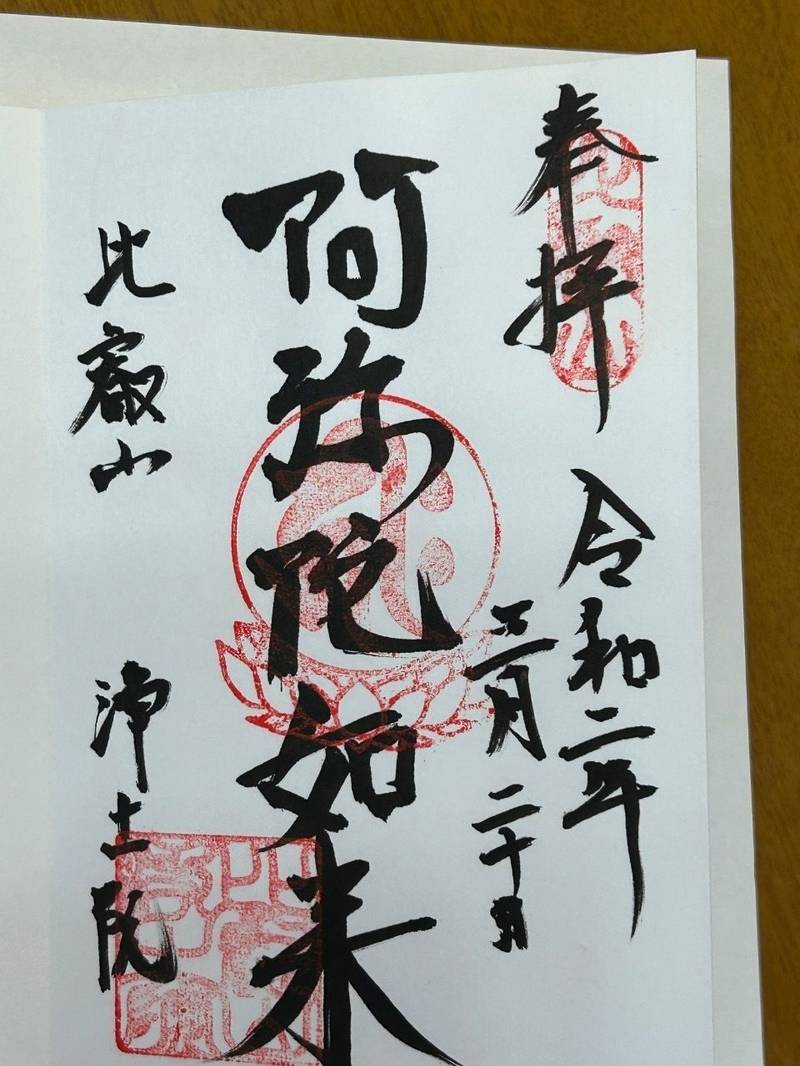 奉拝
令和二年
三月二十日
阿弥陀如来
比叡山 浄土院